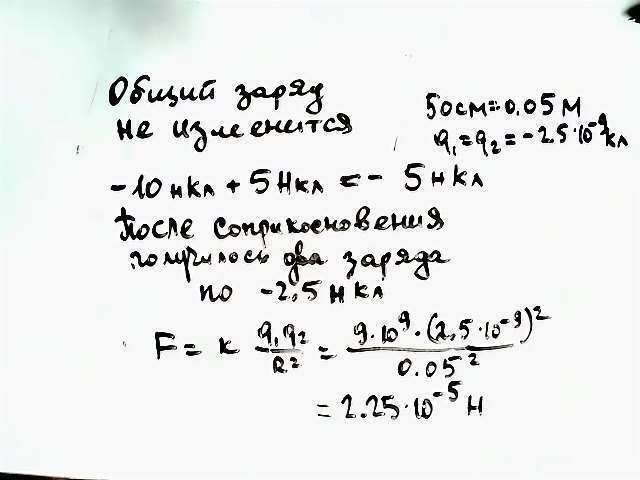 Общий заряд
не изменится
50см=0.05м
q₁=q₂=-2.5·10⁻⁹кл
-10нкл + 5Нкл = - 5нкл
После соприкосновения
получилось два заряда
по -2,5нкл
F = k q₁q₂/R² = 9·10⁹·(2,5·10⁻⁹)²/0.05²
= 2.25·10⁻⁵Н